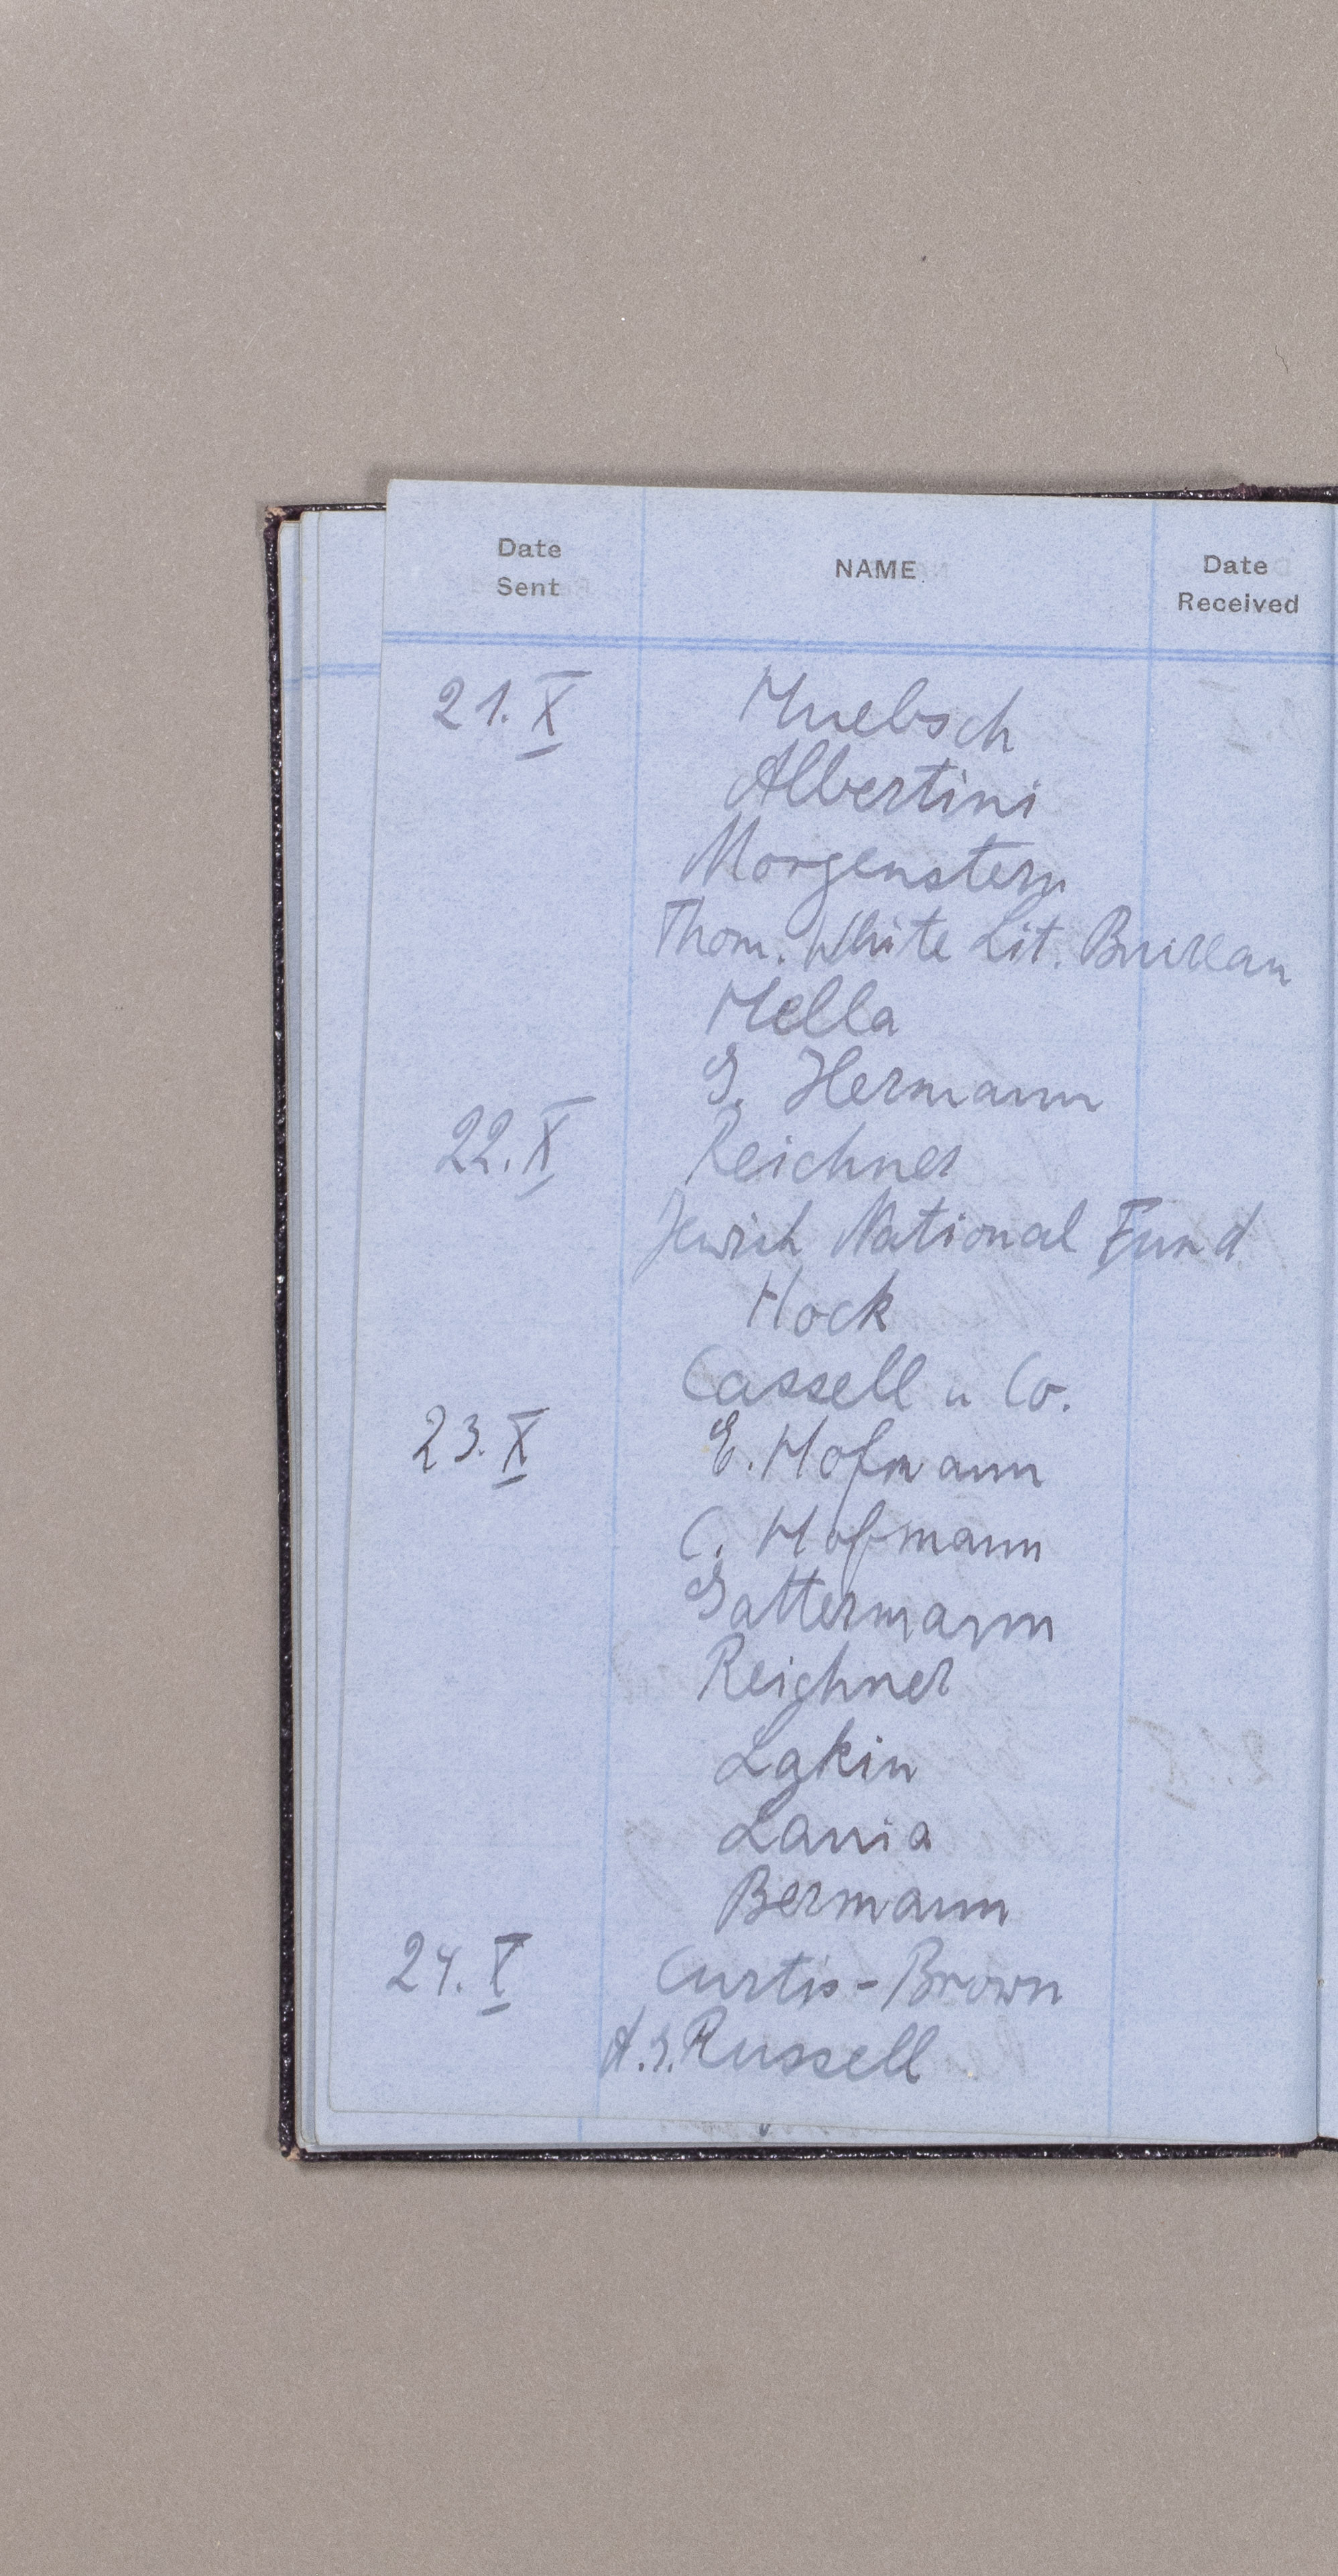 Date Sent NAME Date Received
21. X Huebsch
Albertini
Morgenstern
Thom. White Lit. Bureau
Hella
G. Hermann
22. X Reichner
Jewish National Fund
Hock
Cassell u Co.
23. X E. Hofmann
C. Hofmann
Gattermann
Reichner
Lakin
Lania
Bermann
24. X Curtis-Brown
A. G. Russell